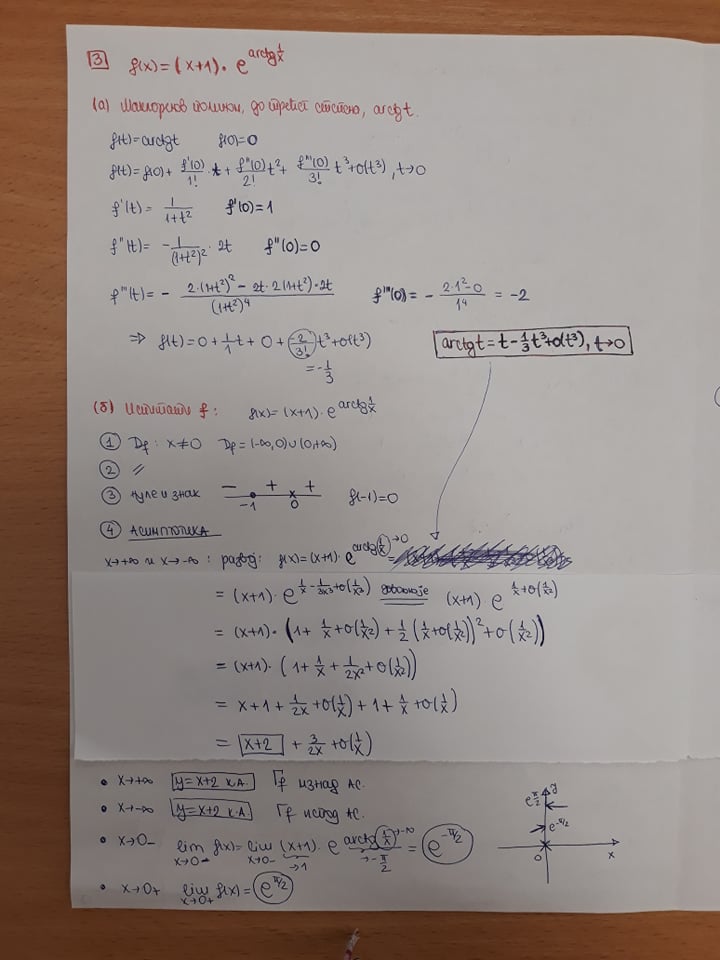 3 f(x) = (x+1) · e^{arctg 1/x}
(а) Маклоренов полином, до трећег степена, arctg t.
f(t) = arctg t f(0) = 0
f(t) = f(0) + f'(0)/1! · t + f''(0)/2! t² + f'''(0)/3! t³ + o(t³), t→0
f'(t) = 1/(1+t²) f'(0) = 1
f''(t) = - 1/(1+t²)² · 2t f''(0) = 0
f'''(t) = - (2·(1+t²)² - 2t·2(1+t²)·2t)/(1+t²)⁴ f'''(0) = - (2·1²-0)/1⁴ = -2
⇒ f(t) = 0 + 1/1 t + 0 + 2/3! t³ + o(t³)
= -1/3
arctg t = t - 1/3 t³ + o(t³), t→0
(б) Испитати f: f(x) = (x+1) · e^{arctg 1/x}
① Df: x≠0 Df = (-∞,0)∪(0,+∞)
② //
③ нуле и знак − + + -1 0 f(-1)=0
④ АСИМПТОТИКА
x→+∞ и x→-∞ : развој: f(x) = (x+1) · e^{arctg (1/x)→0} =
= (x+1) · e^{1/x - 1/3x³ + o(1/x³)} довољно је (x+1) e^{1/x + o(1/x²)}
= (x+1) · (1 + 1/x + o(1/x²) + 1/2 (1/x + o(1/x²))² + o(1/x²))
= (x+1) · (1 + 1/x + 1/2x² + o(1/x²))
= x + 1 + 1/2x + o(1/x) + 1 + 1/x + o(1/x)
= x+2 + 3/2x + o(1/x)
• x→+∞ y = x+2 к.А. Гр изнад АС.
• x→-∞ y = x+2 к.А. Гр испод АС.
• x→0- lim x→0- f(x) = lim x→0- (x+1) →1 · e^{arctg (1/x)→-∞} →-π/2 = e^{-π/2}
• x→0+ lim x→0+ f(x) = e^{π/2}
y
e^{π/2}
e^{-π/2}
0 x